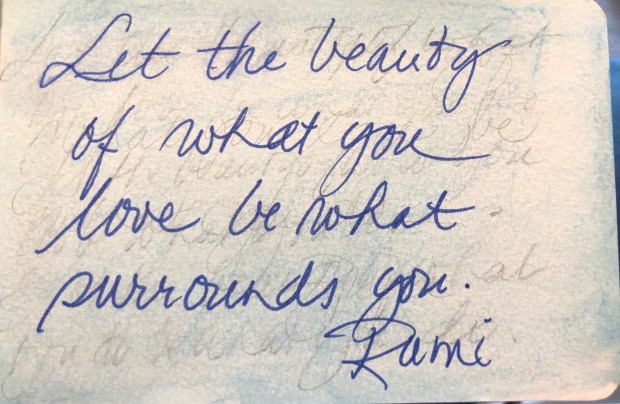 Let the beauty
of what you
love be what
surrounds you.
Rumi